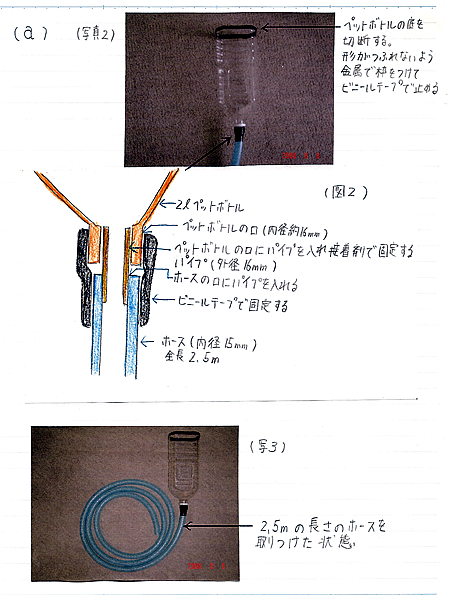 (a)
(写真2)
ペットボトルの底を
切断する。
形がつぶれないよう
金属で枠をつけて
ビニールテープで止める
(図2)
2lペットボトル
ペットボトルの口(内径約16mm)
ペットボトルの口にパイプを入れ接着剤で固定する
パイプ(外径16mm)
ホースの口にパイプを入れる
ビニールテープで固定する
ホース(内径15mm)
全長2.5m
(写3)
2.5mの長さのホースを
取りつけた状態。